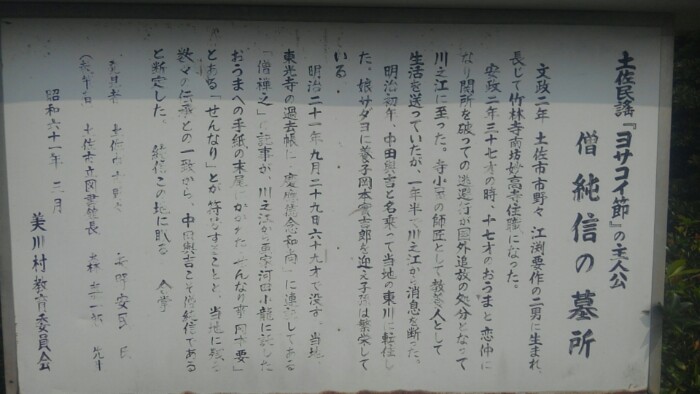 土佐民謡『ヨサコイ節』の主人公
僧純信の墓所
文政二年 土佐市市野々 江渕要作の二男に生まれ
長じて竹林寺南坊妙高寺住職になった。
安政二年三十七才の時、十七才のおうまと恋仲に
なり関所を破っての逃避行が国外追放の処分となって
川之江に至った。寺小屋の師匠として教養人として
生活を送っていたが、一年半で川之江から消息を断った。
明治初年、中田與吉と名乗って当地の東川に転住し
た。娘サダヨに養子岡本實吉郎を迎え子孫は繁栄して
いる。
明治二十一年九月二十九日六十九才で没す。当地
東光寺の過去帳に、慶應信念和尚に連記してある
「僧禅之」の記事が、川之江から画家河田小龍に託した
おうまへの手紙の末尾にかかれた
とある「せんなり」とが符合することと、当地に残る
数々の伝承との一致から、中田與吉こそ僧純信である
と断定した。 純信この地に眠る 合掌
土佐市市野々 安明 氏
土佐市立図書館長 森
昭和六十一年 三月
美川村教育委員会